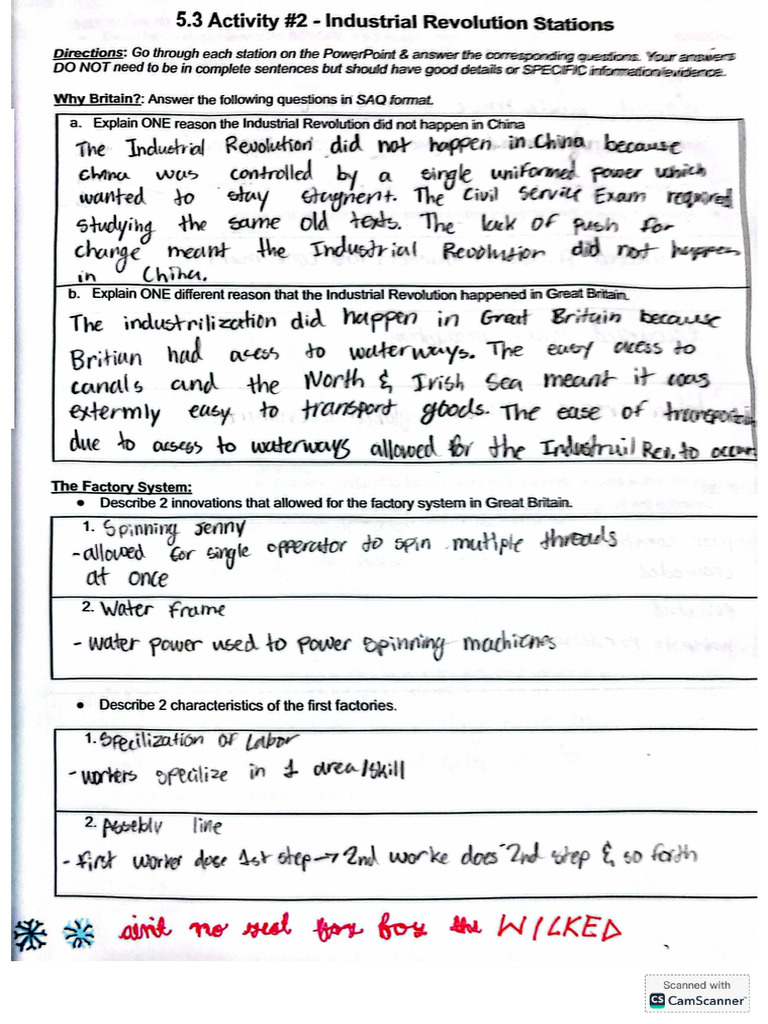 5.3 Activity #2 - Industrial Revolution Stations
Directions: Go through each station on the PowerPoint & answer the corresponding questions. Your answers
DO NOT need to be in complete sentences but should have good details or SPECIFIC information/evidence.
Why Britain?: Answer the following questions in SAQ format.
a. Explain ONE reason the Industrial Revolution did not happen in China
The Industrial Revolution did not happen in China because
China was controlled by a single uniformed power which
wanted to stay stagnent. The Civil Service Exam required
studying the same old texts. The lack of push for
change meant the Industrial Revolution did not happen
in China.
b. Explain ONE different reason that the Industrial Revolution happened in Great Britain.
The industrilization did happen in Great Britain because
Britian had acess to waterways. The easy access to
canals and the North & Irish Sea meant it was
extermly easy to transport goods. The ease of transporting
due to access to waterways allowed for the Industruil Rev. to occur
The Factory System:
• Describe 2 innovations that allowed for the factory system in Great Britain.
1. Spinning Jenny
- allowed for single opperator to spin mutiple threads
at once
2. Water Frame
- water power used to power spinning machicnes
• Describe 2 characteristics of the first factories.
1. Specilization of Labor
- workers specilize in 1 area/skill
2. Assebly line
- first worker dose 1st step → 2nd worke does 2nd step & so forth
ain't no rest for the WICKED
Scanned with
CS CamScanner